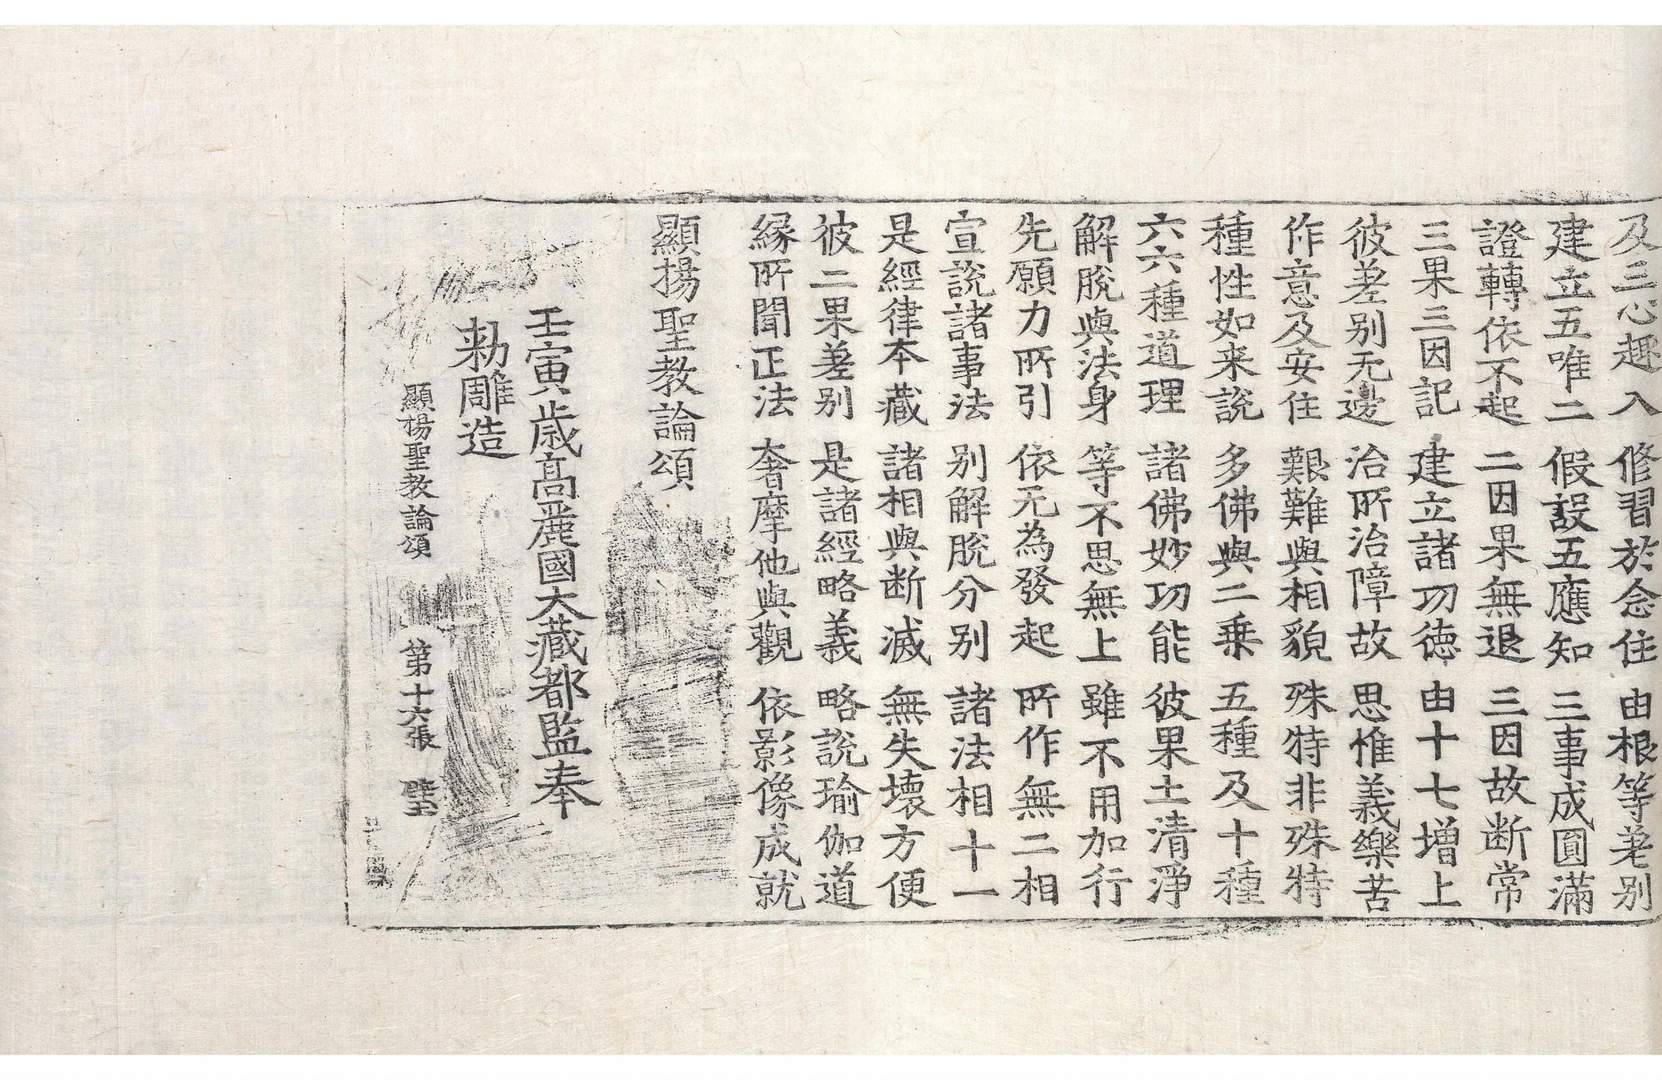 及三心趣入 修習於念住 由根等差别
建立五唯二 假設五應知 三事成圓滿
證轉依不起 二因果無退 三因故断常
三果三因記 建立諸功德 由十七增上
彼差别无邊 治所治障故 思惟義樂苦
作意及安住 艱難與相貌 殊特非殊特
種性如来說 多佛與二乗 五種及十種
六六種道理 諸佛妙功能 彼果土清淨
解脫與法身 等不思無上 雖不用加行
先願力所引 依无為發起 所作無二相
宣說諸事法 别解脫分别 諸法相十一
是經律本藏 諸相與断滅 無失壞方便
彼二果差别 是諸經略義 略說瑜伽道
緣所聞正法 奢摩他與觀 依影像成就
顯揚聖教論頌
壬寅歳高麗國大藏都監奉
勑雕造
顯揚聖教論頌 第十六張 璧